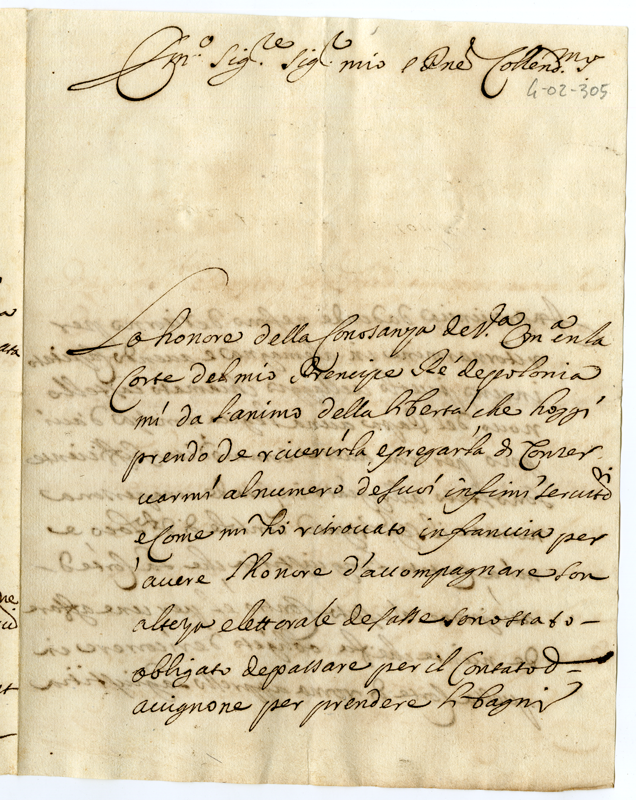 Em.º Sig.re Sig.r mio e Pne Collend.mo
4-02-305
La honore della Conosanza de V.ª Em.ª en la
Corte del mio Prencipe Ré de polonia
mi da l'animo della libertá che hoggi
prendo de rciverirla e pregarla di Conser
uarmi al numero de suoi infimi seruitori
e Come mi hó ritrouato in francia per
auere l'honore d'accompagnare son
alteza elettorale de sasse sono stato –
obbligato de passare per il Contato d –
auignone per prendere li bagni